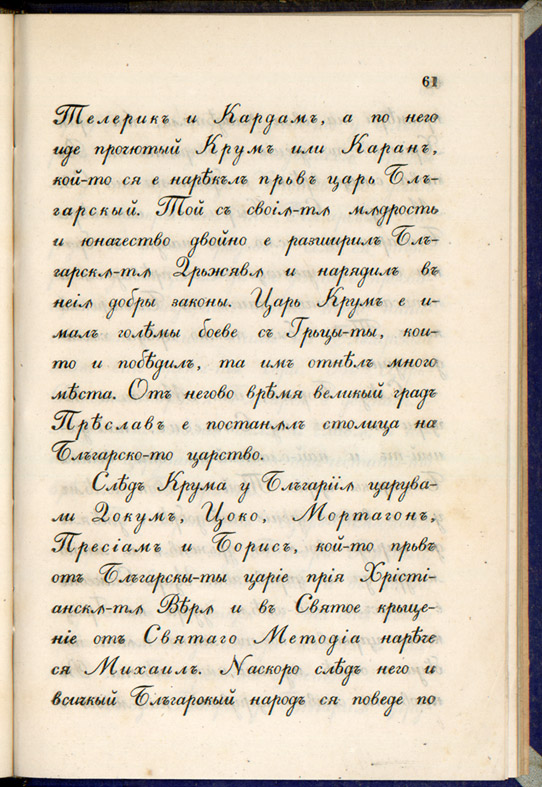 61
Телерикъ и Кардамъ, а по него
иде прочютый Крумъ или Каранъ,
кой-то ся е нарѣкълъ прьвъ царь Блъ-
гарскый. Той съ своіѫ-тѫ мѫдрость
и юначество двойно е разширилъ Блъ-
гарскѫ-тѫ Държявѫ и нарядилъ въ
неіѫ добры законы. Царь Крумъ е и-
малъ голѣмы боеве съ Грьцы-ты, кои-
то и побѣдилъ, та имъ отнѣлъ много
мѣста. Отъ негово врѣмя великый градъ
Прѣславъ е постанѫлъ столица на
Блъгарско-то царство.
Слѣдъ Крума у Блъгаріѭ царува-
ли Докумъ, Цоко, Мортагонъ,
Пресіамъ и Борисъ, кой-то прьвъ
отъ Блъгарскы-ты царіе прія Хрісті-
анскѫ-тѫ Вѣрѫ и въ Святое крыще-
ніе отъ Святаго Методіа нарѣче
ся Михаилъ. Наскоро слѣдъ него и
всичкый Блъгарскый народъ ся поведе по